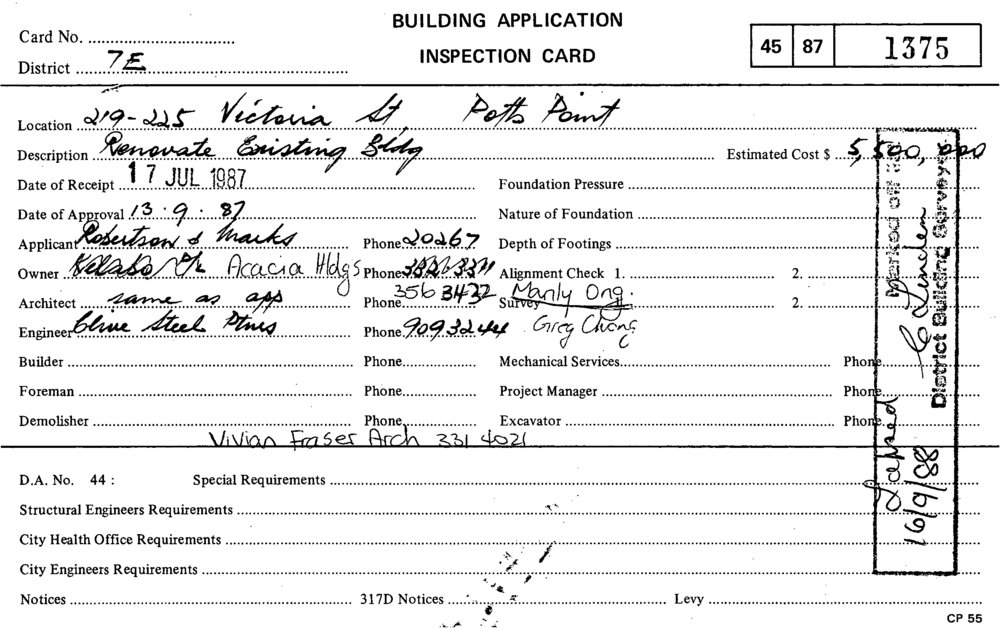 BUILDING APPLICATION
INSPECTION CARD
Card No.
District 7E
45 87 1375
Location 219-225 Victoria St, Potts Point
Description Renovate Existing Bldg Estimated Cost $ 5,500,000
Date of Receipt 17 JUL 1987 Foundation Pressure
Date of Approval 13.9.87 Nature of Foundation
Applicant Robertson & Marks Phone 20267 Depth of Footings
Owner Acacia Hldgs Phone Alignment Check 1. 2.
Architect same as app Phone 356 3432 Survey Manly Ong. 2.
Engineer Clive Steel Ptnrs Phone 9093244 Greg Chong
Builder Phone Mechanical Services Phone
Foreman Phone Project Manager Phone
Demolisher Phone Excavator Phone
Vivian Fraser Arch 331 4021
D.A. No. 44 : Special Requirements
Structural Engineers Requirements
City Health Office Requirements
City Engineers Requirements
Notices 317D Notices Levy
CP 55
Lapsed Marked off list
16/9/88 C Linden
District Building Surveyor